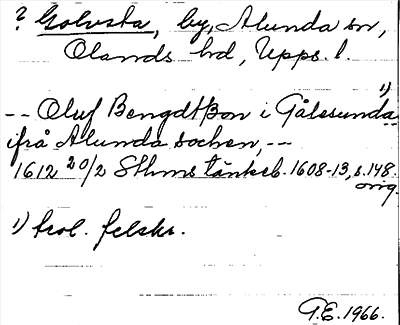 ? Golvsta, by, Alunda sn,
Olands hd, Upps. l.
-- Oluf Bengdtßon i Gålesunda 1)
ifrå Alunda sochen, --
1612 20/2 Sthms tänkeb. 1608-13, s. 148.
orig.
1) trol. felskr.
G.E. 1966.